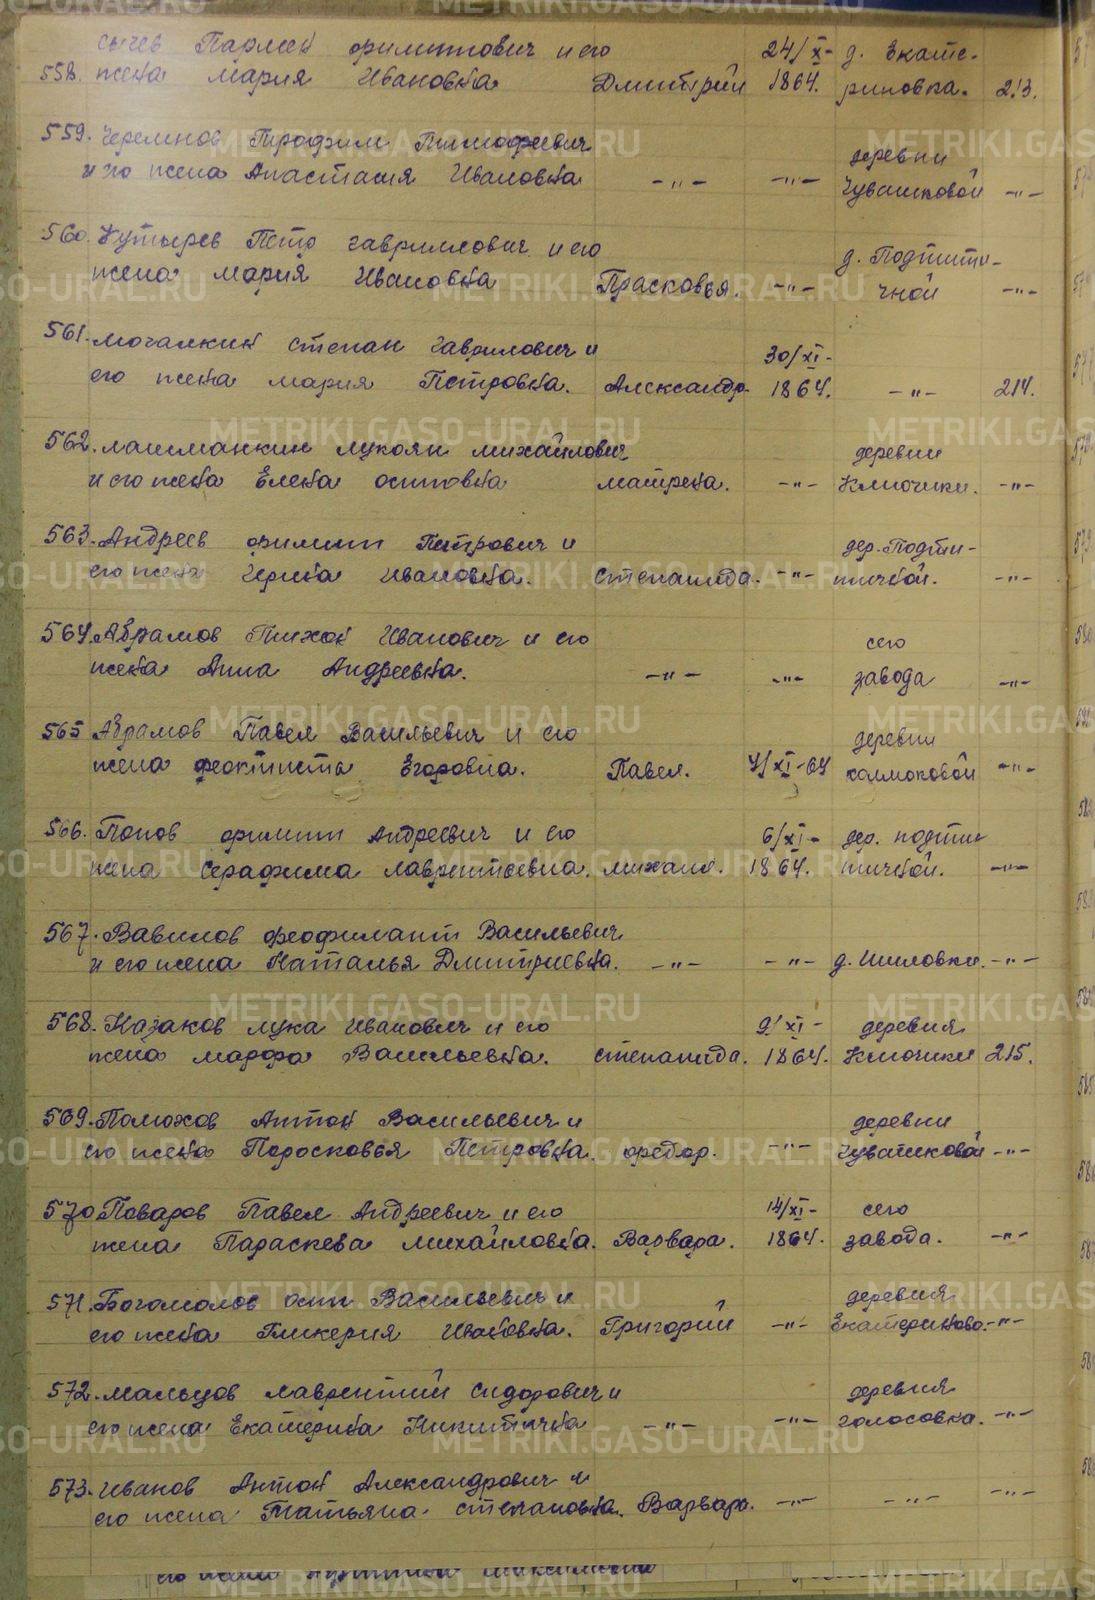 Сычев Пармен Филиппович и его 24/X- д. Екате-
558. жена Мария Ивановна Дмитрий 1864. риновка. 213.
559. Черемнов Трофим Тимофеевич деревни
и его жена Анастасия Ивановна -"- -"- Чувашковой -"-
560. Кутырев Петр Гаврилович и его д. Подпти-
жена Мария Ивановна Прасковья. -"- чной -"-
561. Мочалкин Степан Гаврилович и 30/XI-
его жена Мария Петровна. Александр. 1864. -"- 214.
562. Лашманкин Лукоян Михайлович деревни
и его жена Елена Осиповна Матрена. -"- Ключики. -"-
563. Андреев Филипп Петрович и дер. Подпти-
его жена Ивановна. Степанида. -"- тичной. -"-
564. Абрамов Тихон Иванович и его сего
жена Анна Андреевна. -"- -"- завода -"-
565 Абрамов Павел Васильевич и его деревни
жена Феоктиста Егоровна. Павел. 4/XI-64 Колмоковой -"-
566. Попов Филипп Андреевич и его 6/XI- дер. Подпти
жена Серафима Лаврентьевна. Михаил. 1864. тичной. -"-
567. Вавилов Феофилакт Васильевич
и его жена Наталья Дмитриевна. -"- -"- д. Шиловки. -"-
568. Казаков Лука Иванович и его 9/XI- деревня
жена Марфа Васильевна. Степанида. 1864. Ключики 215.
569. Полюхов Антон Васильевич и деревни
его жена Поросковья Петровна. Федор. -"- Чувашковой -"-
570 Поваров Павел Андреевич и его 14/XI- сего
жена Параскева Михайловна. Варвара. 1864. завода. -"-
571. Богомолов Осип Васильевич и деревня
его жена Гликерия Ивановна. Григорий -"- Екатериново. -"-
572. Мальцов Лаврентий Сидорович и деревня
его жена Екатерина Никитична -"- -"- Голосовка. -"-
573. Иванов Антон Александрович и
его жена Татьяна Степановна. Варвара. -"- -"- -"-